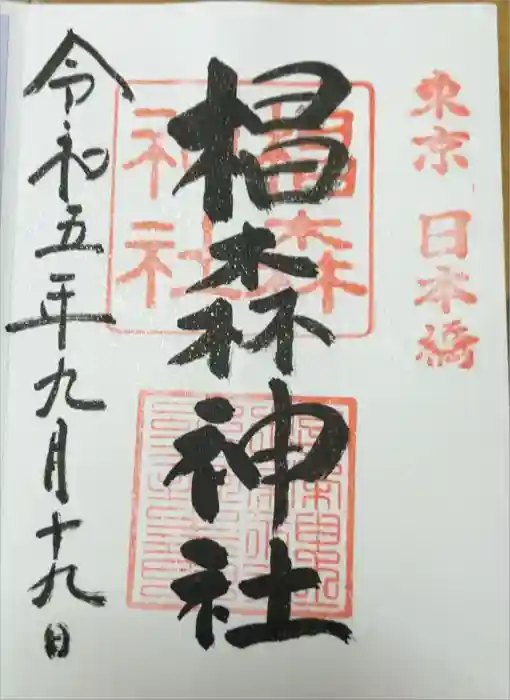 東京 日本橋
椙森神社
椙森
神社
令和五年九月十九日